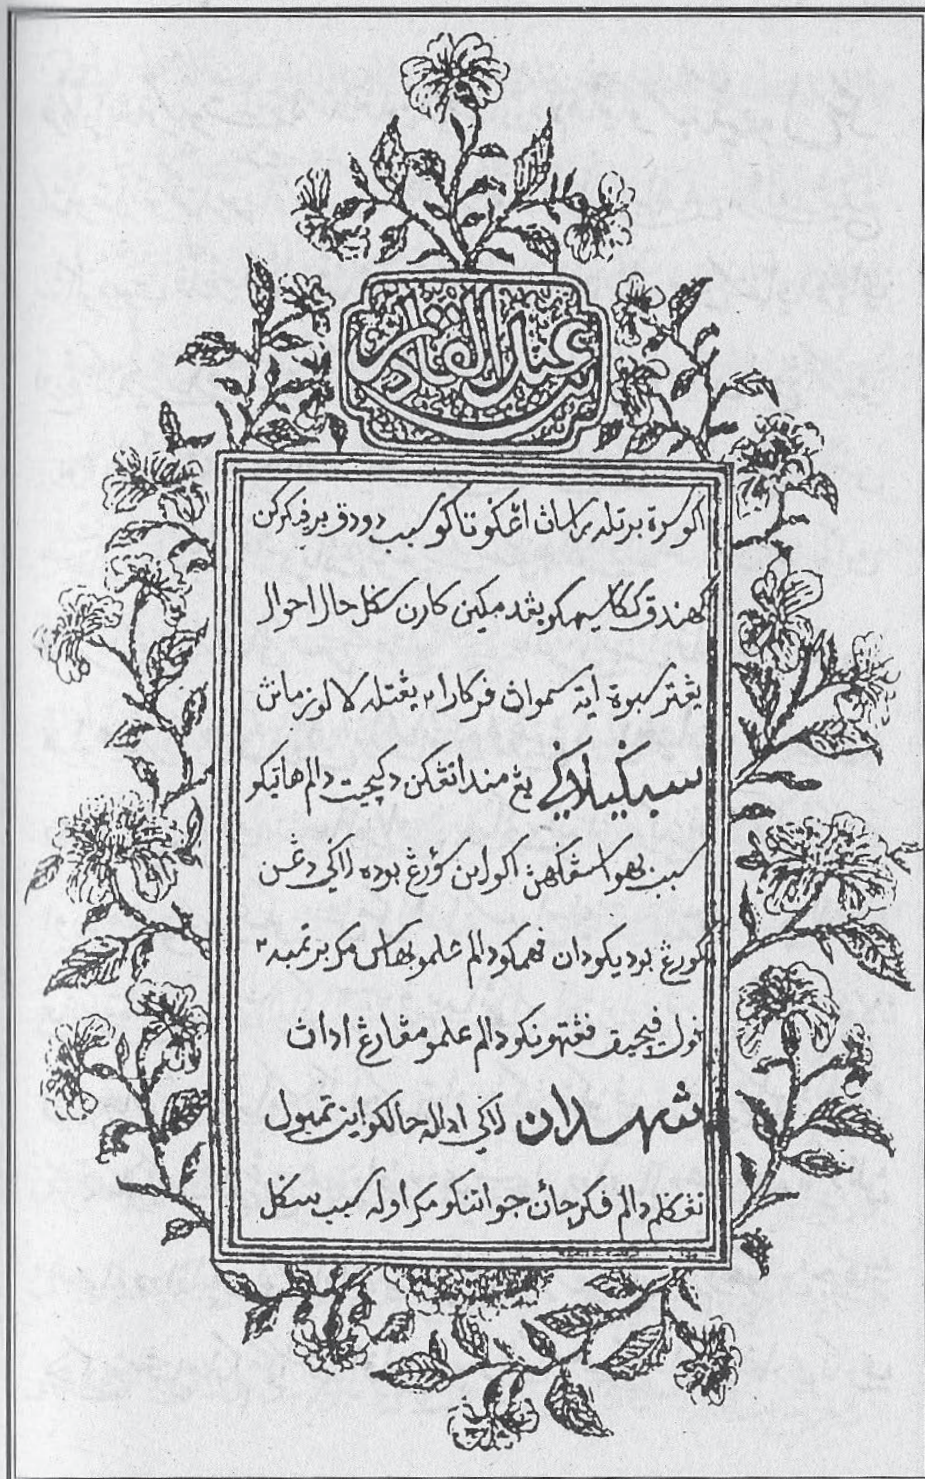 عبد القادر
اکو سرة برتله براساث اڠݢوتاکو سبب دودق برفيکرکن
کهندق ککاسيهکو يڠدمکين کارن سکل حال احوال
يڠترسبوة ايت سمواث فرکارا٢ يڠتله لالو زمانث
سبݢيلاݢي يڠ مندانڠکن دکچيت دالم هاتيکو
سبب بهواسڠݢهڽ اکو اين اورڠ بوده لاݢي دڠن
کورڠ بوديکو دان فهمکو دالم علمو بهاس مک برتمبه٢
فول فيچيق فڠتهونکو دالم علمو مڠارڠ اداث
شهدان لاݢي اداله حالکو اين تمبول
تڠݢلم دالم فکرجاٴن جواتنکو مک اوله سبب سکل